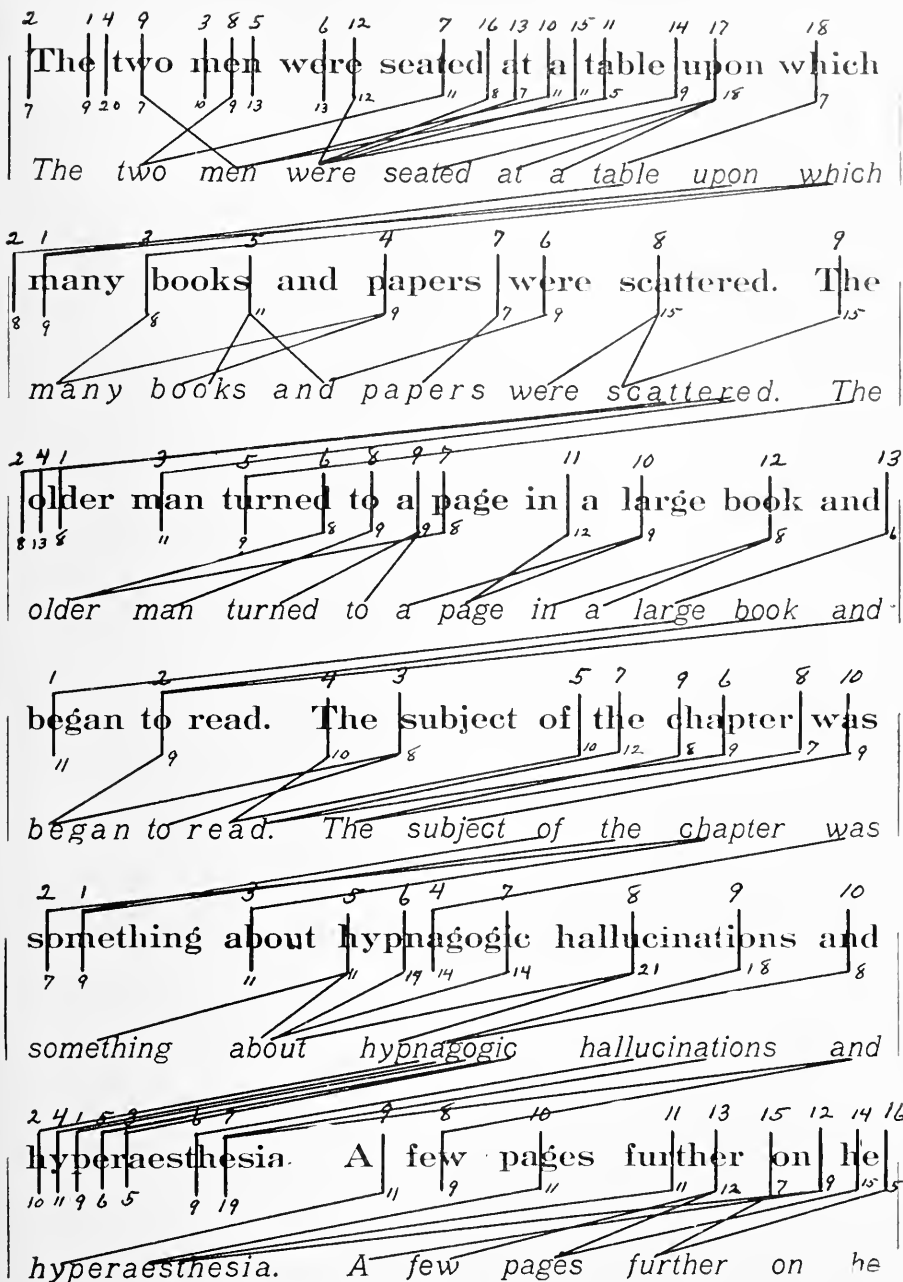 2 1 4 9 3 8 5 6 12 7 16 13 10 15 11 14 17 18
The two men were seated at a table upon which
7 9 20 7 10 9 5 13 13 12 11 8 7 11 11 5 9 18 7
The two men were seated at a table upon which
2 1 3 5 4 7 6 8 9
many books and papers were scattered. The
8 9 8 11 9 7 9 15 15
many books and papers were scattered. The
2 4 1 3 5 6 8 9 7 11 10 12 13
older man turned to a page in a large book and
8 13 8 11 9 8 9 9 8 12 9 8 6
older man turned to a page in a large book and
1 2 4 3 5 7 9 6 8 10
began to read. The subject of the chapter was
11 9 10 8 10 12 8 9 7 9
began to read. The subject of the chapter was
2 1 3 5 6 4 7 8 9 10
something about hypnagogic hallucinations and
7 9 11 11 19 14 14 21 18 8
something about hypnagogic hallucinations and
2 4 1 5 3 6 7 9 8 10 11 13 15 12 14 16
hyperaesthesia. A few pages further on he
10 11 9 6 5 9 19 11 9 11 11 12 7 9 15 5
hyperaesthesia. A few pages further on he